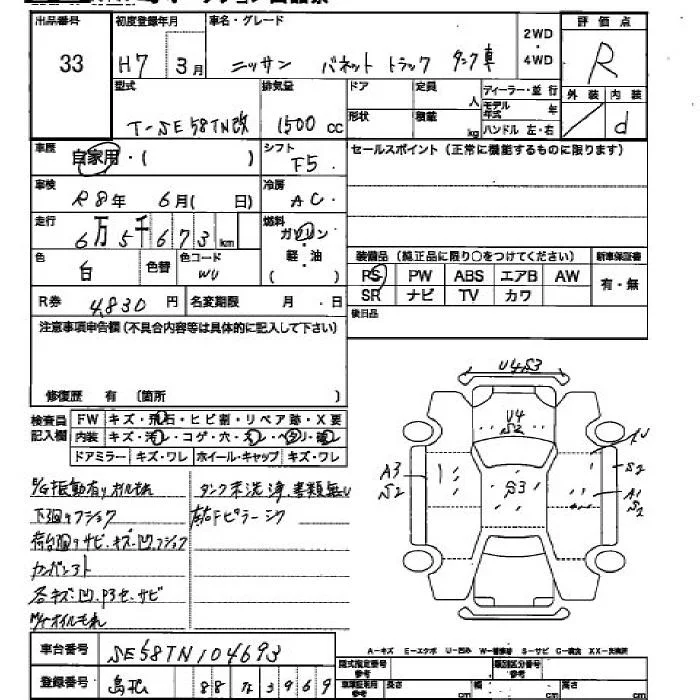 出品番号
33
初度登録年月
H7 3月
車名・グレード
ニッサン バネット トラック タンク車
2WD
・
4WD
評価点
R
外装 内装
d
型式
T-SE58TN改
排気量
1500 cc
ドア
定員
人
形状
積載
kg
ディーラー・並行
モデル年式 年
ハンドル 左・右
車歴
自家用・( )
シフト
F5
セールスポイント (正常に機能するものに限ります)
車検
R8年 6月( 日)
冷房
AC
走行
6万5千673km
燃料
ガソリン
・
軽・油
( )
色
白
色替
色コード
WU
装備品 (純正品に限り○をつけてください)
新車保証書
PS PW ABS エアB AW
SR ナビ TV カワ
有・無
R券
4,830円
名変期限 月・日
後日品
注意事項申告欄(不具合内容等は具体的に記入して下さい)
修復歴 有 〔箇所 〕
検査員記入欄
FW キズ・飛石・ヒビ割・リペア跡・X要
ドアミラー キズ・ワレ ホイール・キャップ キズ・ワレ
E/G振動有り オイルモレ
タンク未洗浄、書類無し
下回りフショク
荷台回りサビ、キズ、凹、フショク
カンバン3ト
各キズ、凹、P3セ、サビ
M/Tオイルモレ
U4S3
U4
S2
S3
A3
S2
S2
A1
S2
A-キズ E-エクボ U-凹み W-補修跡 S-サビ C-腐食 XX-交換済
車台番号
SE58TN104693
登録番号
島根 88 な 3969
類別区分番号
長さ cm
cm
cm